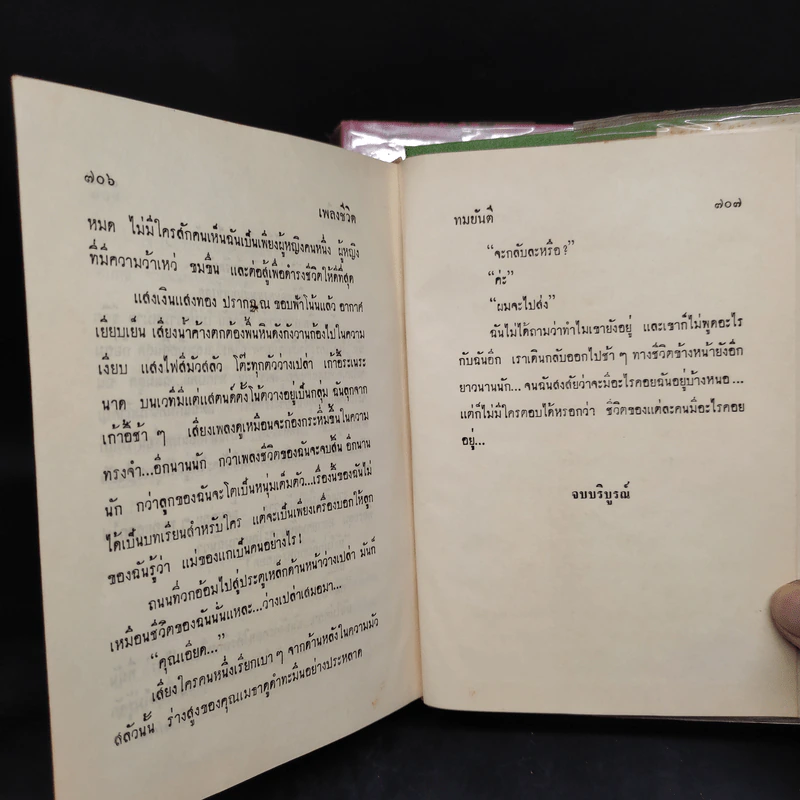 ๗๐๖
เพลงชีวิต
หมด ไม่มีใครสักคนเห็นฉันเป็นเพียงผู้หญิงคนหนึ่ง ผู้หญิง
ที่มีความว้าเหว่ ขมขื่น และต่อสู้เพื่อดำรงชีวิตให้ดีที่สุด
แสงเงินแสงทอง ปรากฏณ ขอบฟ้าโน้นแล้ว อากาศ
เยียบเย็น เสียงน้ำค้างตกต้องพื้นหินดังกังวานก้องไปในความ
เงียบ แสงไฟสีมัวสลัว โต๊ะทุกตัวว่างเปล่า เก้าอี้ระเนระ
นาด บนเวทีมีแต่แสตนด์ตั้งโน้ตวางอยู่เป็นกลุ่ม ฉันลุกจาก
เก้าอี้ช้า ๆ เสียงเพลงดูเหมือนจะก้องกระหึ่มขึ้นในความ
ทรงจำ...อีกนานนัก กว่าเพลงชีวิตของฉันจะจบสิ้น อีกนาน
นัก กว่าลูกของฉันจะโตเป็นหนุ่มเต็มตัว...เรื่องนี้ของฉันไม่
ได้เป็นบทเรียนสำหรับใคร แต่จะเป็นเพียงเครื่องบอกให้ลูก
ของฉันรู้ว่า แม่ของแกเป็นคนอย่างไร!
ถนนที่วกอ้อมไปสู่ประตูเหล็กด้านหน้าว่างเปล่า มันก็
เหมือนชีวิตของฉันนั้นแหละ...ว่างเปล่าเสมอมา...
“คุณเอียด...”
เสียงใครคนหนึ่งเรียกเบา ๆ จากด้านหลังในความมัว
สลัวนั้น ร่างสูงของคุณเมธาดูดำทะมึนอย่างประหลาด
ทมยันตี
๗๐๗
“จะกลับละหรือ?”
“ค่ะ”
“ผมจะไปส่ง”
ฉันไม่ได้ถามว่าทำไมเขายังอยู่ และเขาก็ไม่พูดอะไร
กับฉันอีก เราเดินกลับออกไปช้า ๆ ทางชีวิตข้างหน้ายังอีก
ยาวนานนัก... จนฉันสงสัยว่าจะมีอะไรคอยฉันอยู่บ้างหนอ...
แต่ก็ไม่มีใครตอบได้หรอกว่า ชีวิตของแต่ละคนมีอะไรคอย
อยู่...
จบบริบูรณ์